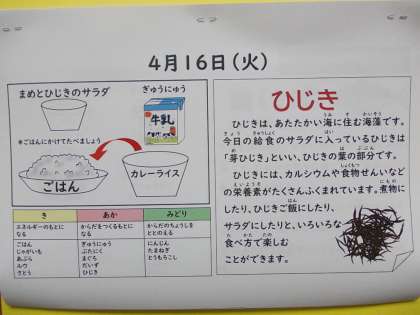 4月16日(火)
まめとひじきのサラダ
ぎゅうにゅう
牛乳
*ごはんにかけてたべましょう
ごはん
カレーライス
き
あか
みどり
エネルギーのもとに
なる
からだをつくるもとに
なる
からだのちょうしを
ととのえる
ごはん
じゃがいも
あぶら
ルウ
さとう
ぎゅうにゅう
ぶたにく
まぐろ
だいず
ひじき
にんじん
たまねぎ
とうもろこし
ひじき
ひじきは、あたたかい海に住む海藻です。
今日の給食のサラダに入っているひじきは
「芽ひじき」といい、ひじきの葉の部分です。
ひじきには、カルシウムや食物せんいなど
の栄養素がたくさんふくまれています。煮物に
したり、ひじきご飯にしたり、
サラダにしたりと、いろいろな
食べ方で楽しむ
ことができます。